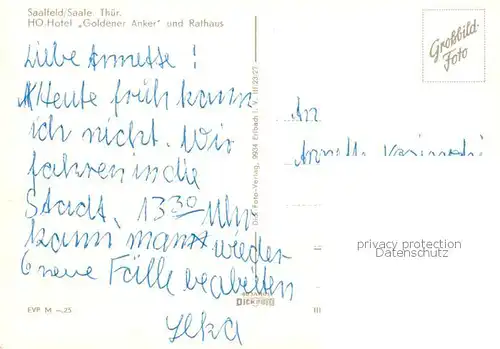 Saalfeld/Saale. Thür.
HO.Hotel „Goldener Anker" und Rathaus
Großbild-
Foto
Liebe Annette!
Heute früh kann
ich nicht. Wir
fahren in die
Stadt. 13 30 Uhr
kann man wieder
6 neue Fälle bearbeiten
Ilka
An
Annette
privacy protection
Datenschutz
Dick Foto-Verlag, 9934 Erlbach i. V. III/23/27
DICK FOTO
EVP M –.25
III